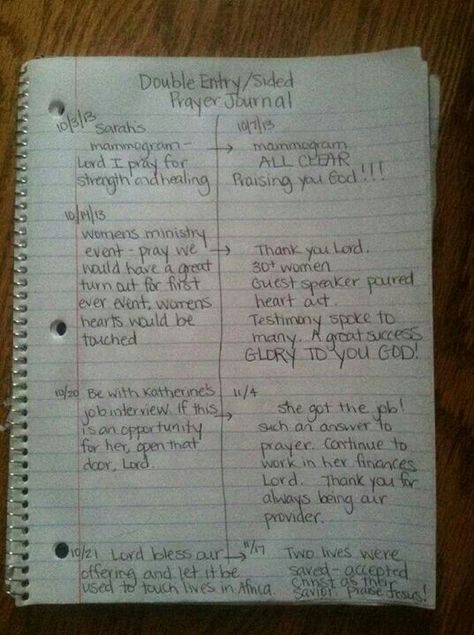 Double Entry/Sided
Prayer Journal
10/3/13 Sarah's
mammogram-
Lord I pray for
strength and healing
10/7/13
→ mammogram
ALL CLEAR
Praising you God!!!
10/14/13
womens ministry
event - pray we
would have a great
turn out for first
ever event, womens
hearts would be
touched
→ Thank you Lord.
30+ women
Guest speaker poured
heart out.
Testimony spoke to
many. A great success
GLORY TO YOU GOD!
10/20 Be with Katherine's
job interview. If this
is an opportunity
for her, open that
door, Lord.
11/4
→ she got the job!
such an answer to
prayer. Continue to
work in her finances
Lord. Thank you for
always being our
provider.
10/21 Lord bless our
offering and let it be
used to touch lives in Africa.
11/17
→ Two lives were
saved - accepted
Christ as their
savior. Praise Jesus!